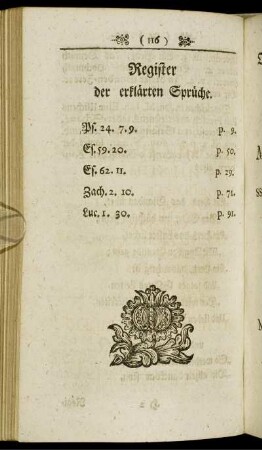 ( 116 )
Register
der erklärten Sprüche.
Ps. 24. 7. 9. p. 9.
Es. 59. 20. p. 50.
Es. 62. 11. p. 29.
Zach. 2. 10. p. 71.
Luc. 1. 30. p. 91.